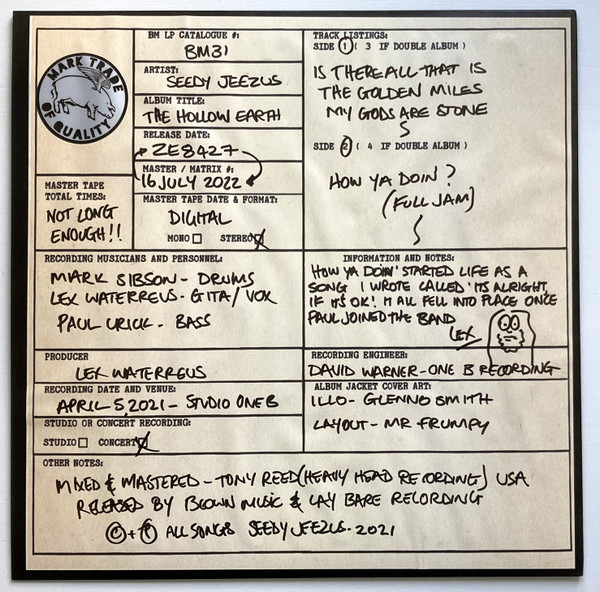 MARK TRADE
OF QUALITY
BM LP CATALOGUE #:
BM31
ARTIST:
SEEDY JEEZUS
ALBUM TITLE:
THE HOLLOW EARTH
RELEASE DATE:
ZE8427
MASTER / MATRIX #:
16 JULY 2022
MASTER TAPE DATE & FORMAT:
DIGITAL
MONO STEREO
MASTER TAPE
TOTAL TIMES:
NOT LONG
ENOUGH!!
TRACK LISTINGS:
SIDE 1 ( 3 IF DOUBLE ALBUM )
IS THERE ALL THAT IS
THE GOLDEN MILES
MY GODS ARE STONE
SIDE 2 ( 4 IF DOUBLE ALBUM )
HOW YA DOIN?
(FULL JAM)
RECORDING MUSICIANS AND PERSONNEL:
MARK SIBSON - DRUMS
LEX WATERREUS - GITA/VOX
PAUL CRICK - BASS
INFORMATION AND NOTES:
HOW YA DOIN' STARTED LIFE AS A
SONG I WROTE CALLED 'ITS ALRIGHT,
IF IT'S OK'. IT ALL FELL INTO PLACE ONCE
PAUL JOINED THE BAND
LEX
PRODUCER
LEX WATERREUS
RECORDING DATE AND VENUE:
APRIL 5, 2021 - STUDIO ONE B
STUDIO OR CONCERT RECORDING:
STUDIO CONCERT
RECORDING ENGINEER:
DAVID WARNER - ONE B RECORDING
ALBUM JACKET COVER ART:
ILLO - GLENNO SMITH
LAYOUT - MR FRUMPY
OTHER NOTES:
MIXED & MASTERED - TONY REED (HEAVY HEAD RECORDING) USA
RELEASED BY BLOWN MUSIC & LAY BARE RECORDING
©+℗ ALL SONGS SEEDY JEEZUS - 2021